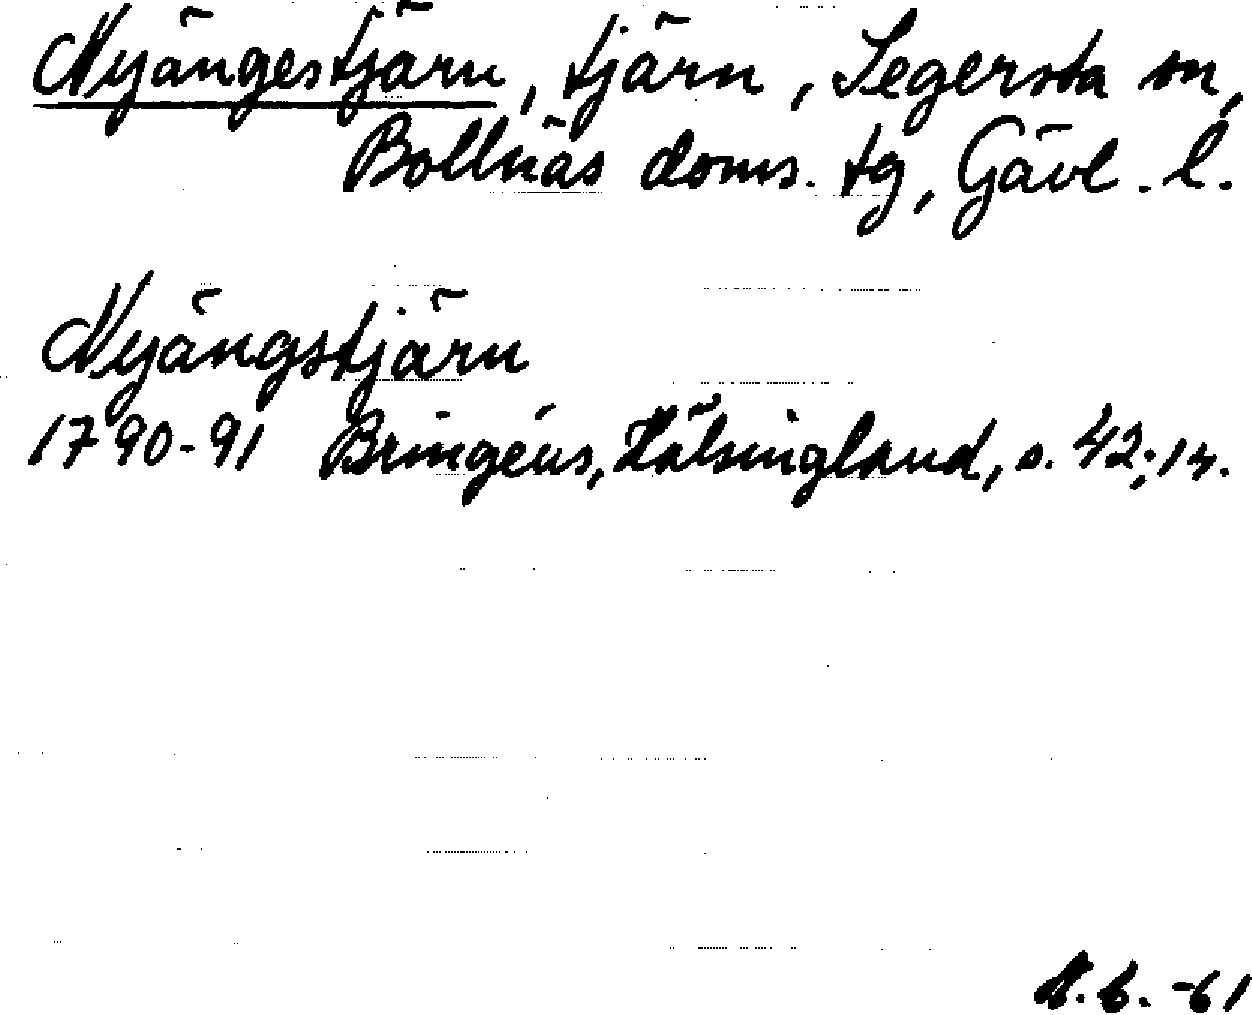 Nyängestjärn, tjärn, Segersta sn,
Bollnäs doms. tg, Gävl. l.
Nyängstjärn
1790-91 Bringéus, Hälsingland, s. 42;
-61